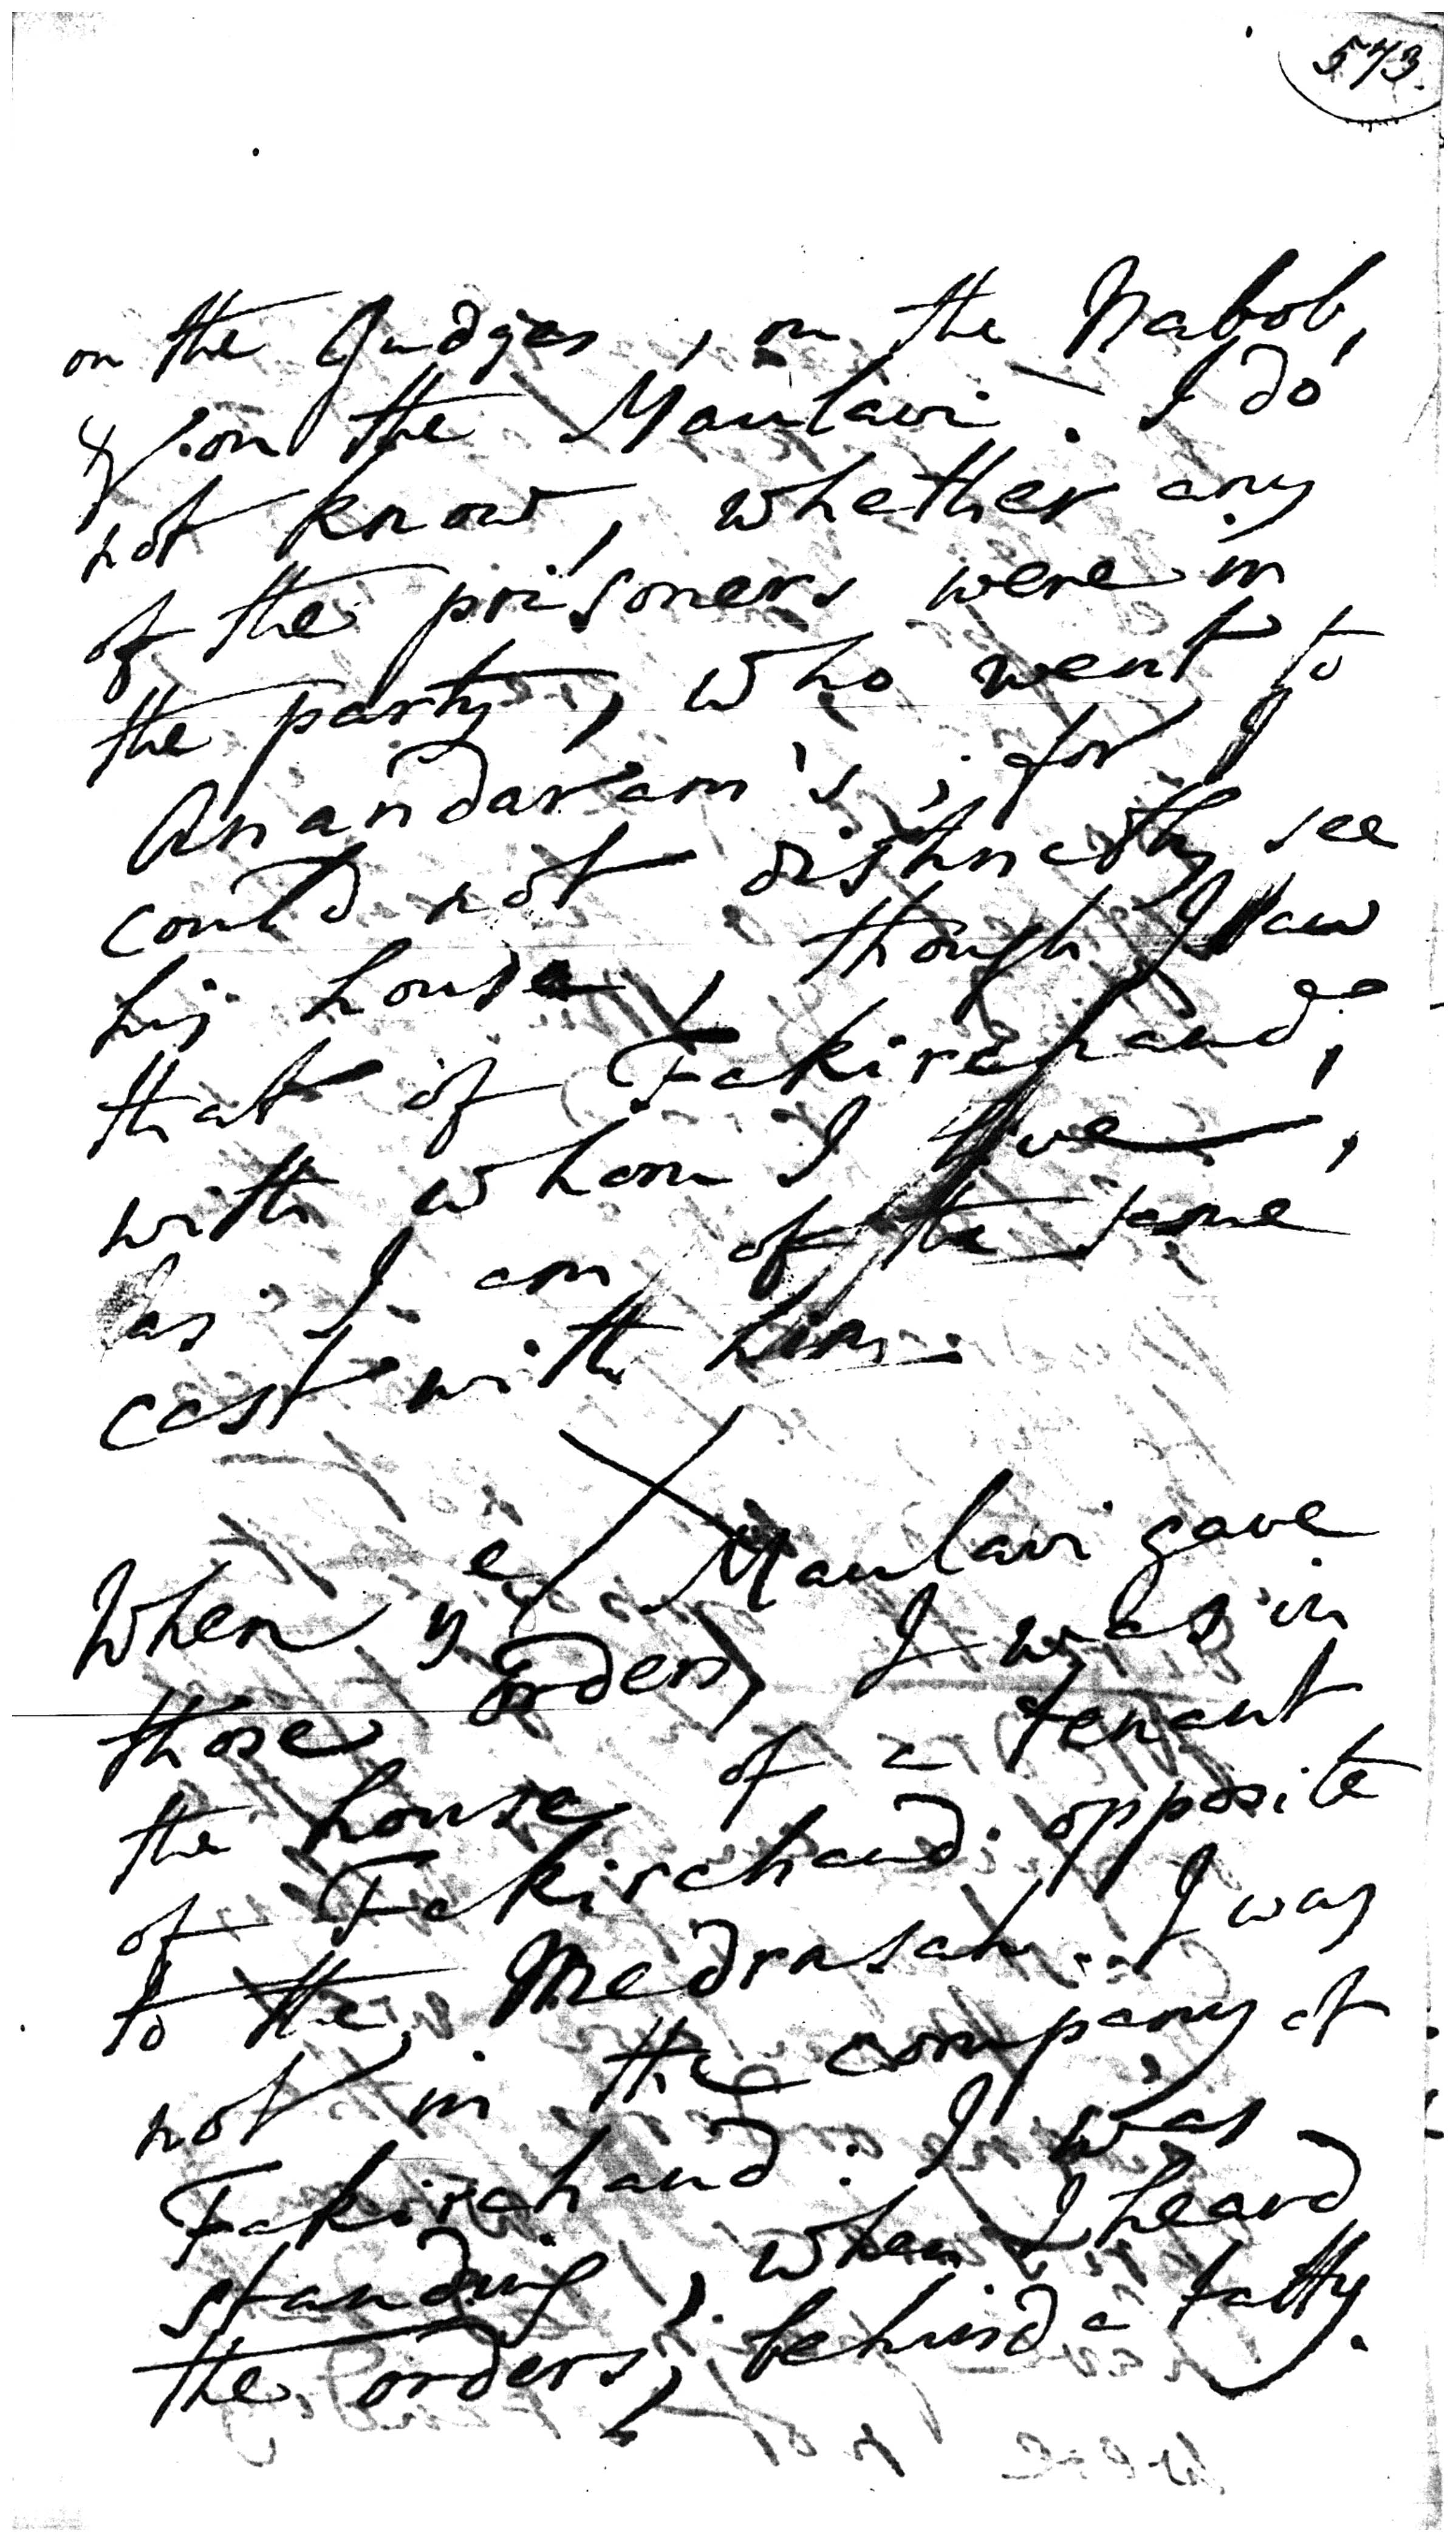 573.
on the Judges, on the Nabob,
& on the Maulavi. I do
not know, whether any
of the prisoners were in
the party, who went to
Anandaram's; for I
could not distinctly see
his house, though I saw
that of Fakirchand,
with whom I live,
as I am of the same
cast with him.
When ye Maulavi gave
those orders, I was in
the house of a tenant
of Fakirchand opposite
to the Medrasah. I was
not in the company of
Fakirchand: I was
standing, when I heard
the orders, behind a tatty.